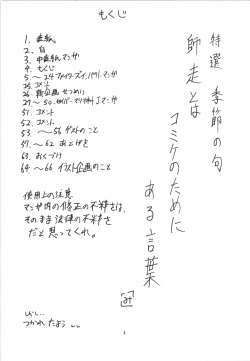 もくじ
1. 表紙
2. 白
3. 中表紙マンガ
4. もくじ
5. 〜24
25. コメント
26. 企画せつめい
27〜50.
51. コメント
52. コメント
53. 〜56 ゲストのこと
57. 〜62 あとがき
63. おくづけ
64 〜66 イラスト企画のこと
使用上の注意
マンガ内の修正の不粋さは、
そのまま法律の不粋さ
だと思ってくれ。
つかれたよう
特選 季節の句
師走とは
コミケのために
ある言葉
4